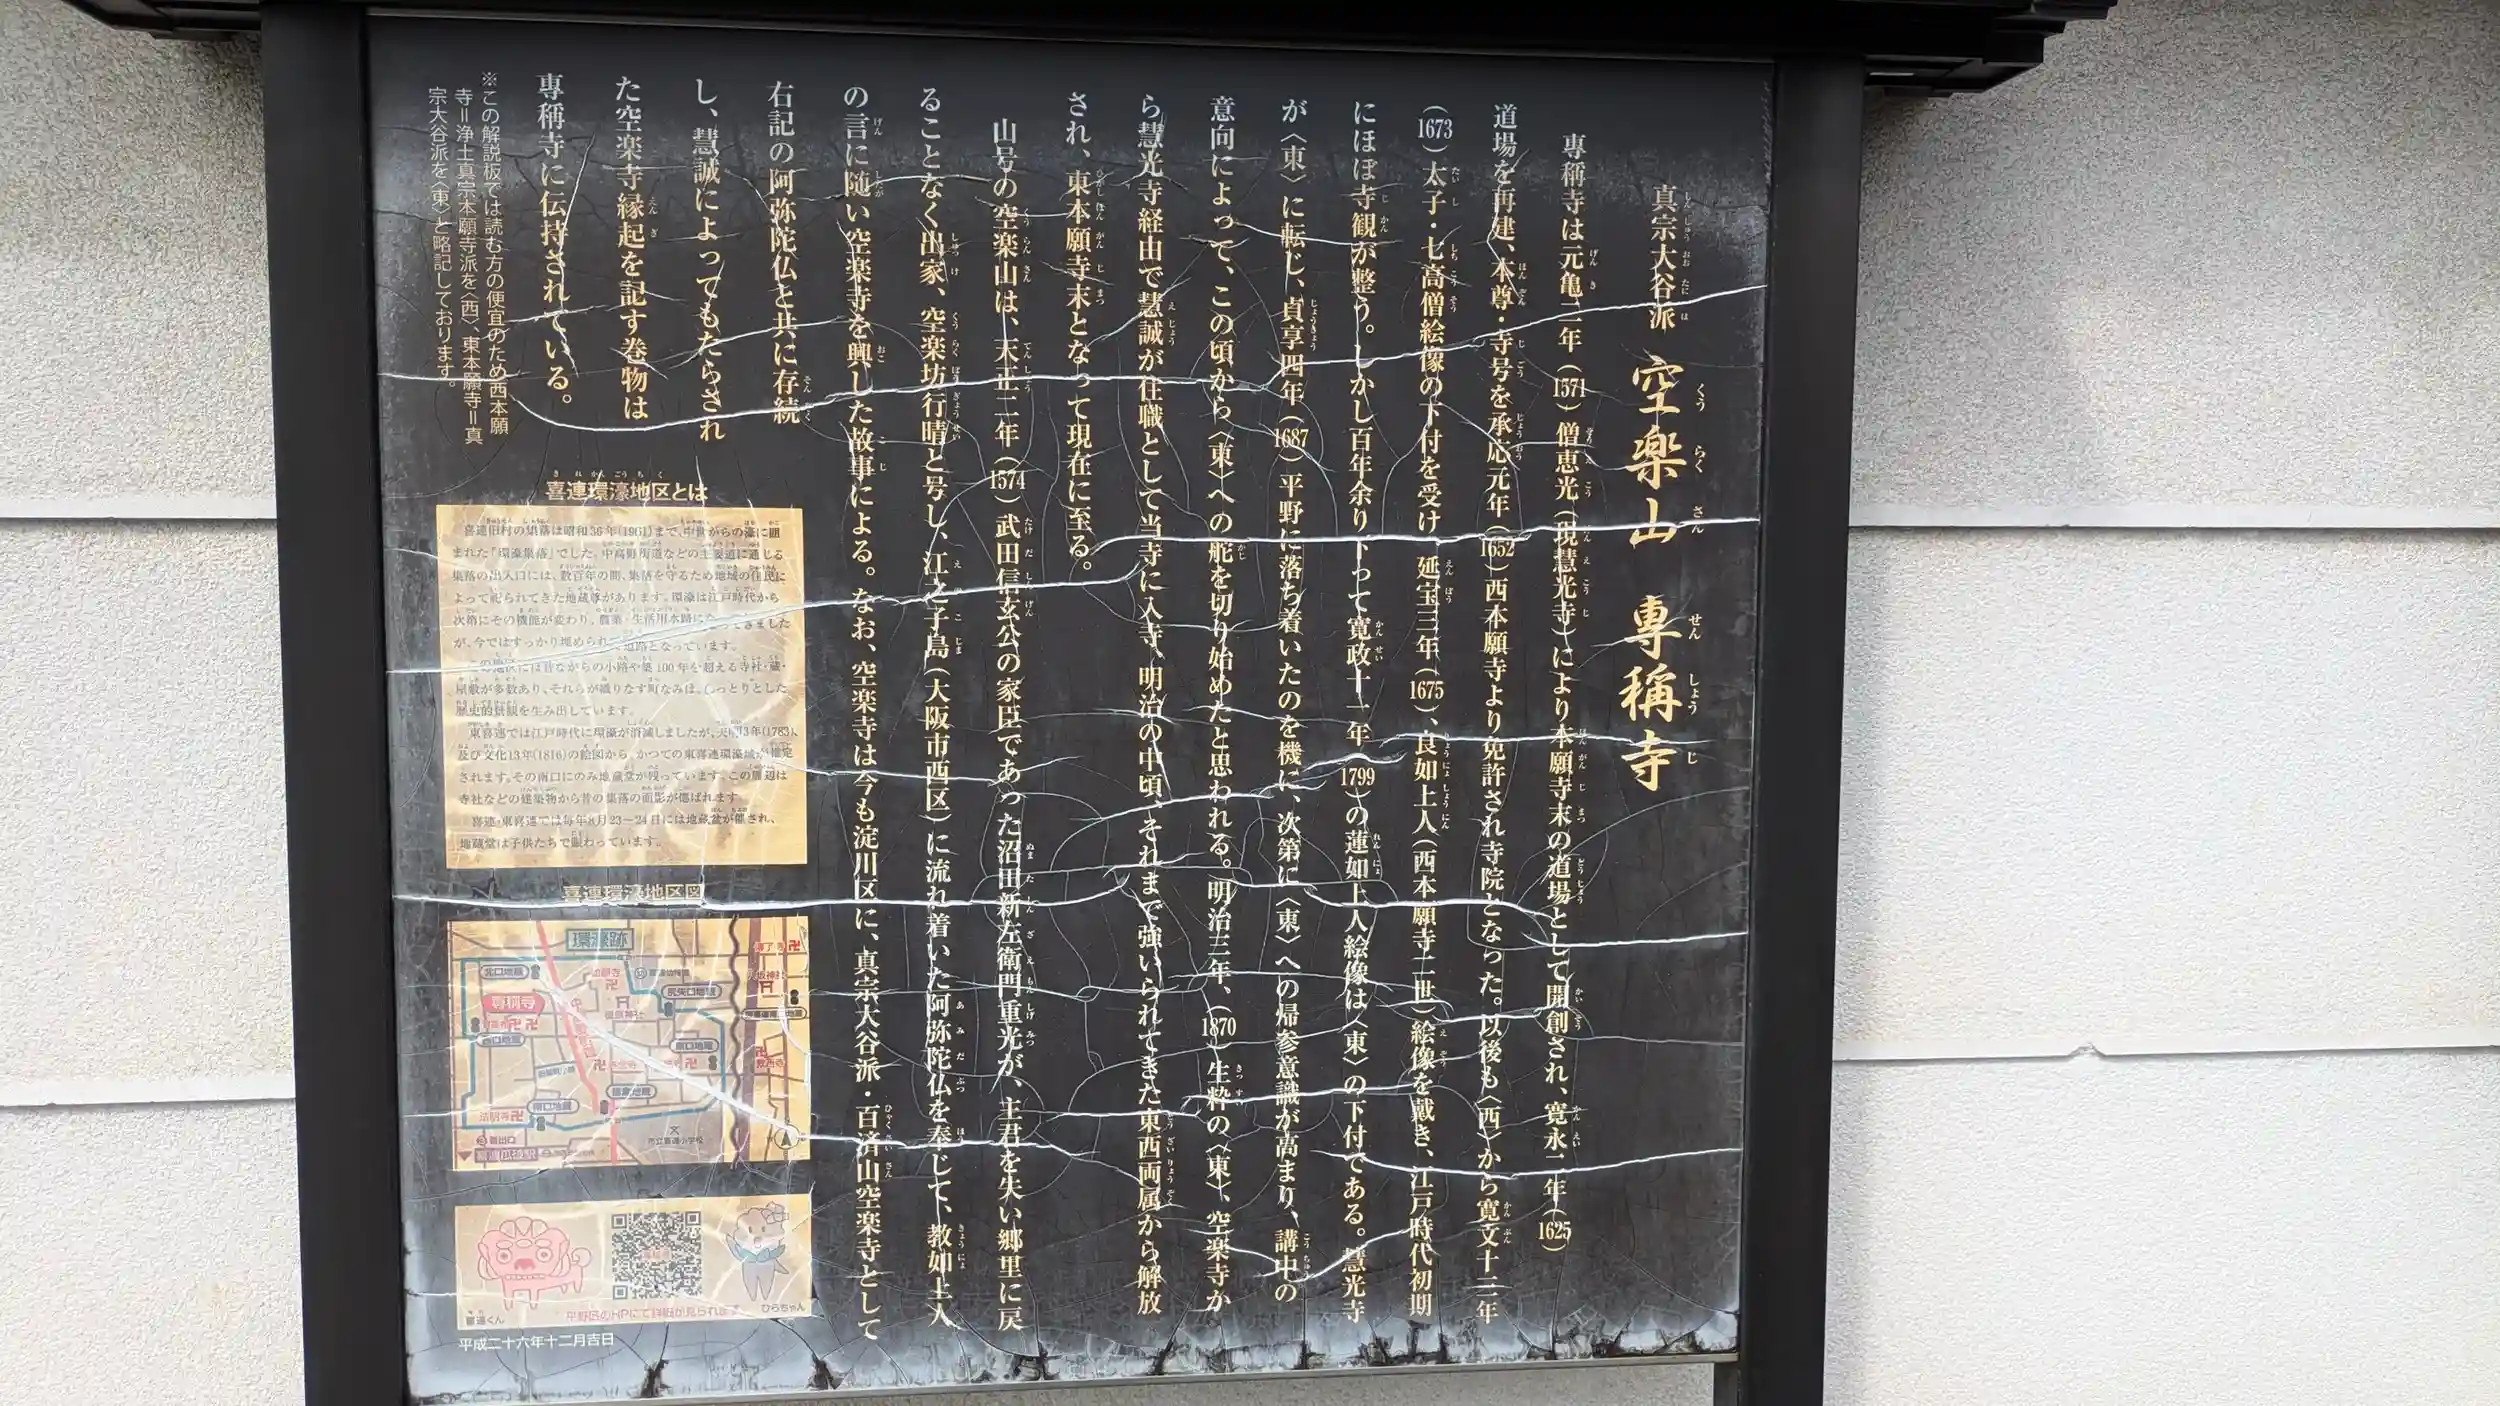 真宗大谷派 空楽山 専稱寺
専稱寺は元亀二年（1571）僧恵光（現慧光寺）により本願寺末の道場として開創され、寛永二年（1625）
道場を再建、本尊・寺号を承応元年（1652）西本願寺より免許され寺院となった。以後も〈西〉から寛文十三年
（1673）太子・七高僧絵像の下付を受け 延宝三年（1675）、良如上人（西本願寺二世）絵像を戴き、江戸時代初期
にほぼ寺観が整う。しかし百年余り下って寛政十一年（1799）の蓮如上人絵像は〈東〉の下付である。慧光寺
が〈東〉に転じ、貞享四年（1687）平野に落ち着いたのを機に、次第に〈東〉への帰参意識が高まり、講中の
意向によって、この頃から〈東〉への舵を切り始めたと思われる。明治三年、（1870）生粋の〈東〉、空楽寺か
ら慧光寺経由で慧誠が住職として当寺に入寺、明治の中頃、それまで強いられてきた東西両属から解放
され、東本願寺末となって現在に至る。
山号の空楽山は、天正二年（1574）武田信玄公の家臣であった沼田新左衛門重光が、主君を失い郷里に戻
ることなく出家、空楽坊行晴と号し、江之子島（大阪市西区）に流れ着いた阿弥陀仏を奉じて、教如上人
の言に随い空楽寺を興した故事による。なお、空楽寺は今も淀川区に、真宗大谷派・百済山空楽寺として
右記の阿弥陀仏と共に存続
し、慧誠によってもたらされ
た空楽寺縁起を記す巻物は
専稱寺に伝持されている。
※この解説板では読む方の便宜のため西本願
寺＝浄土真宗本願寺派を〈西〉、東本願寺＝真
宗大谷派を〈東〉と略記しております。
喜連環濠地区とは
喜連旧村の集落は昭和36年(1961)まで、中世からの濠に囲
まれた「環濠集落」でした。中高野街道などの主要道に通じる
集落の出入口には、数百年の間、集落を守るため地域の住民に
よって祀られてきた地蔵尊があります。環濠は江戸時代から
次第にその機能が変わり、農業・生活用水路になってきました
が、今ではすっかり埋められて道路となっています。
この地区には昔ながらの小路や築100年を超える寺社・蔵・
屋敷が多数あり、それらが織りなす町なみは、しっとりとした
歴史的景観を生み出しています。
東喜連では江戸時代に環濠が消滅しましたが、天明3年(1783)、
及び文化13年(1816)の絵図から、かつての東喜連環濠城が推定
されます。その南口にのみ地蔵堂が残っています。この周辺は
寺社などの建築物から昔の集落の面影が偲ばれます。
喜連・東喜連では毎年8月23−24日には地蔵盆が催され、
地蔵堂は子供たちで賑わっています。
喜連環濠地区図
環濠跡
北口地蔵
尻矢口地蔵
専稱寺
西口地蔵
南口地蔵
法明寺
市立喜連小学校
喜連瓜破駅
喜連くん
平野区のHPにて詳細が見られます
ひらちゃん
平成二十六年十二月吉日